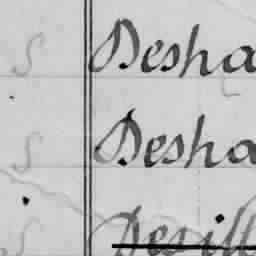 S Desha
S Desha
S Desill